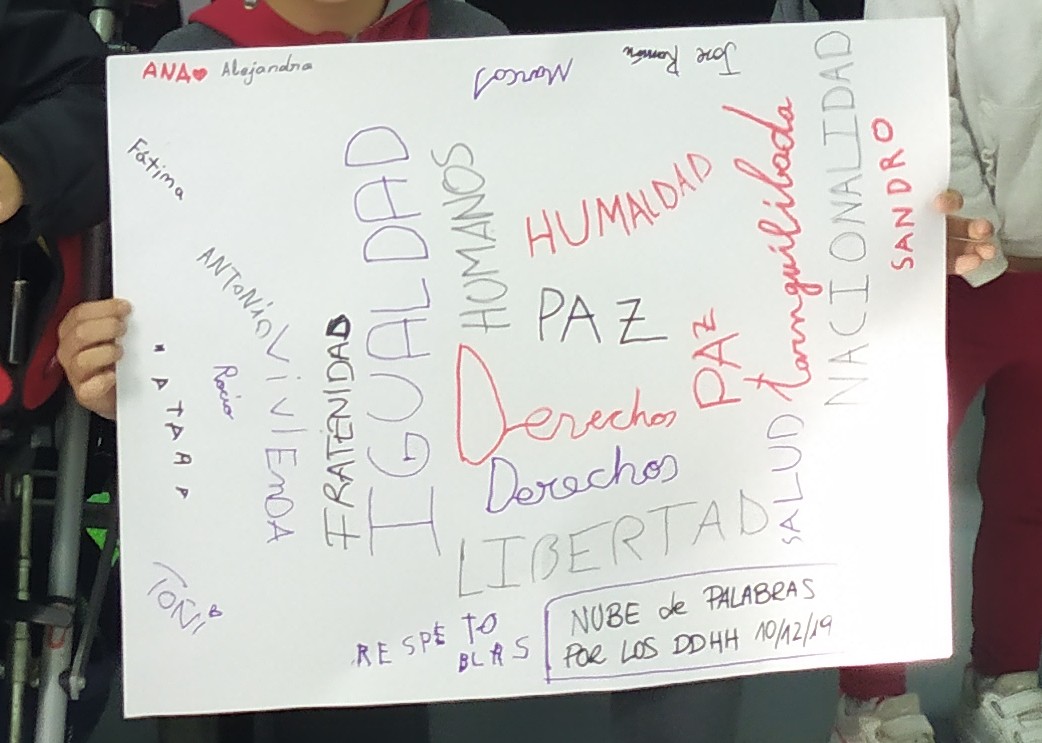 ANA Alejandra
Marcos
Jose Ramón
Fátima
ANTONIO
Rocío
ViViEmDA
FRATENIDAD
IGUALDAD
HUMANOS
HUMALDAD
PAZ
PAZ
Derechos
Derechos
LIBERTAD
SALUD
tarnquilidada
NACIONALIDAD
SANDRO
TOÑI B
RESPETO
BLAS
NUBE de PALABRAS
POR LOS DDHH 10/12/19